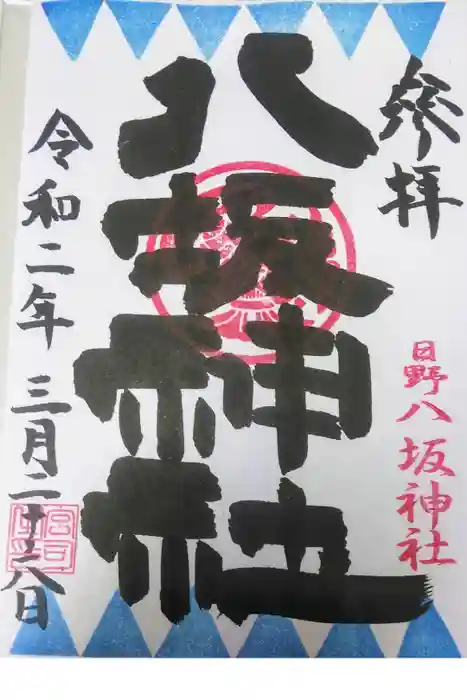 參拝
日野八坂神社
八坂神社
令和二年 三月二十八日